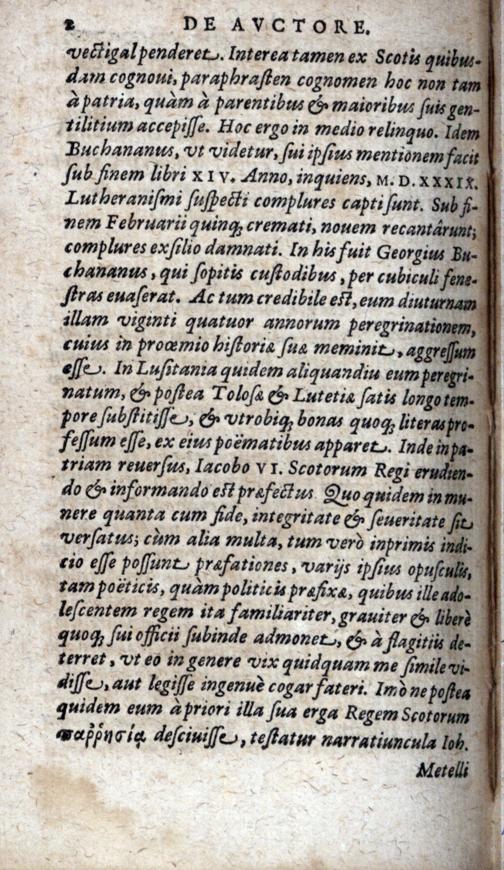 2 DE AVCTORE.
vectigal penderet. Interea tamen ex Scotis quibus-
dam cognoui, paraphrasten cognomen hoc non tam
à patria, quàm à parentibus & maioribus suis gen-
tilitium accepisse. Hoc ergo in medio relinquo. Idem
Buchananus, vt videtur, sui ipsius mentionem facit
sub finem libri XIV. Anno, inquiens, M. D. XXXIX.
Lutheranismi suspecti complures capti sunt. Sub fi-
nem Februarii quinq; cremati, nouem recantârunt;
complures exsilio damnati. In his fuit Georgius Bu-
chananus, qui sopitis custodibus, per cubiculi fene-
stras euaserat. Ac tum credibile est, eum diuturnam
illam viginti quatuor annorum peregrinationem,
cuius in proœmio historiæ suæ meminit, aggressum
esse. In Lusitania quidem aliquandiu eum peregri-
natum, & postea Tolosæ & Lutetiæ satis longo tem-
pore substitisse, & vtrobiq; bonas quoq; literas pro-
fessum esse, ex eius poëmatibus apparet. Inde in pa-
triam reuersus, Iacobo VI. Scotorum Regi erudien-
do & informando est præfectus. Quo quidem in mu-
nere quanta cum fide, integritate & seueritate sit
versatus; cùm alia multa, tum verò inprimis indi-
cio esse possunt præfationes, varijs ipsius opusculis,
tam poëticis, quàm politicis præfixæ, quibus ille ado-
lescentem regem ita familiariter, grauiter & liberè
quoq; sui officii subinde admonet, & à flagitiis de-
terret, vt eo in genere vix quidquam me simile vi-
disse, aut legisse ingenuè cogar fateri. Imò ne postea
quidem eum à priori illa sua erga Regem Scotorum
παῤῥησίᾳ desciuisse, testatur narratiuncula Ioh.
Metelli